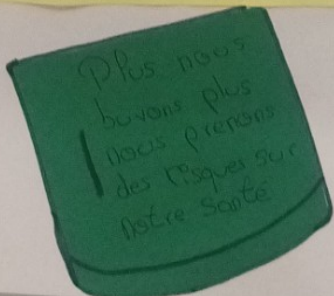 Plus nous
buvons plus
nous prenons
des risques sur
notre santé